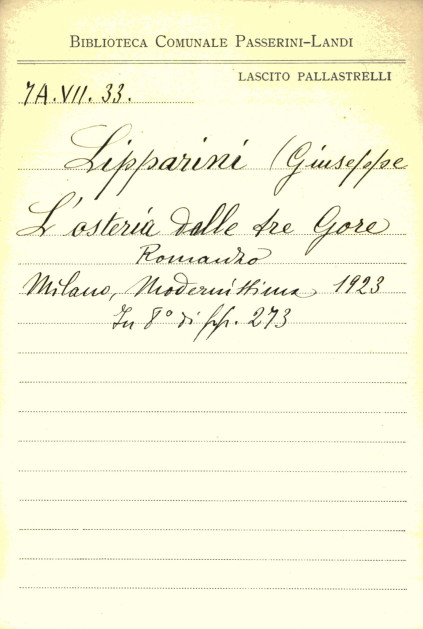 BIBLIOTECA COMUNALE PASSERINI-LANDI
LASCITO PALLASTRELLI
7A.VII.33.
Lipparini (Giuseppe
L'osteria dalle tre Gore
Romanzo
Milano, Modernissima, 1923
In 8° di pp. 273